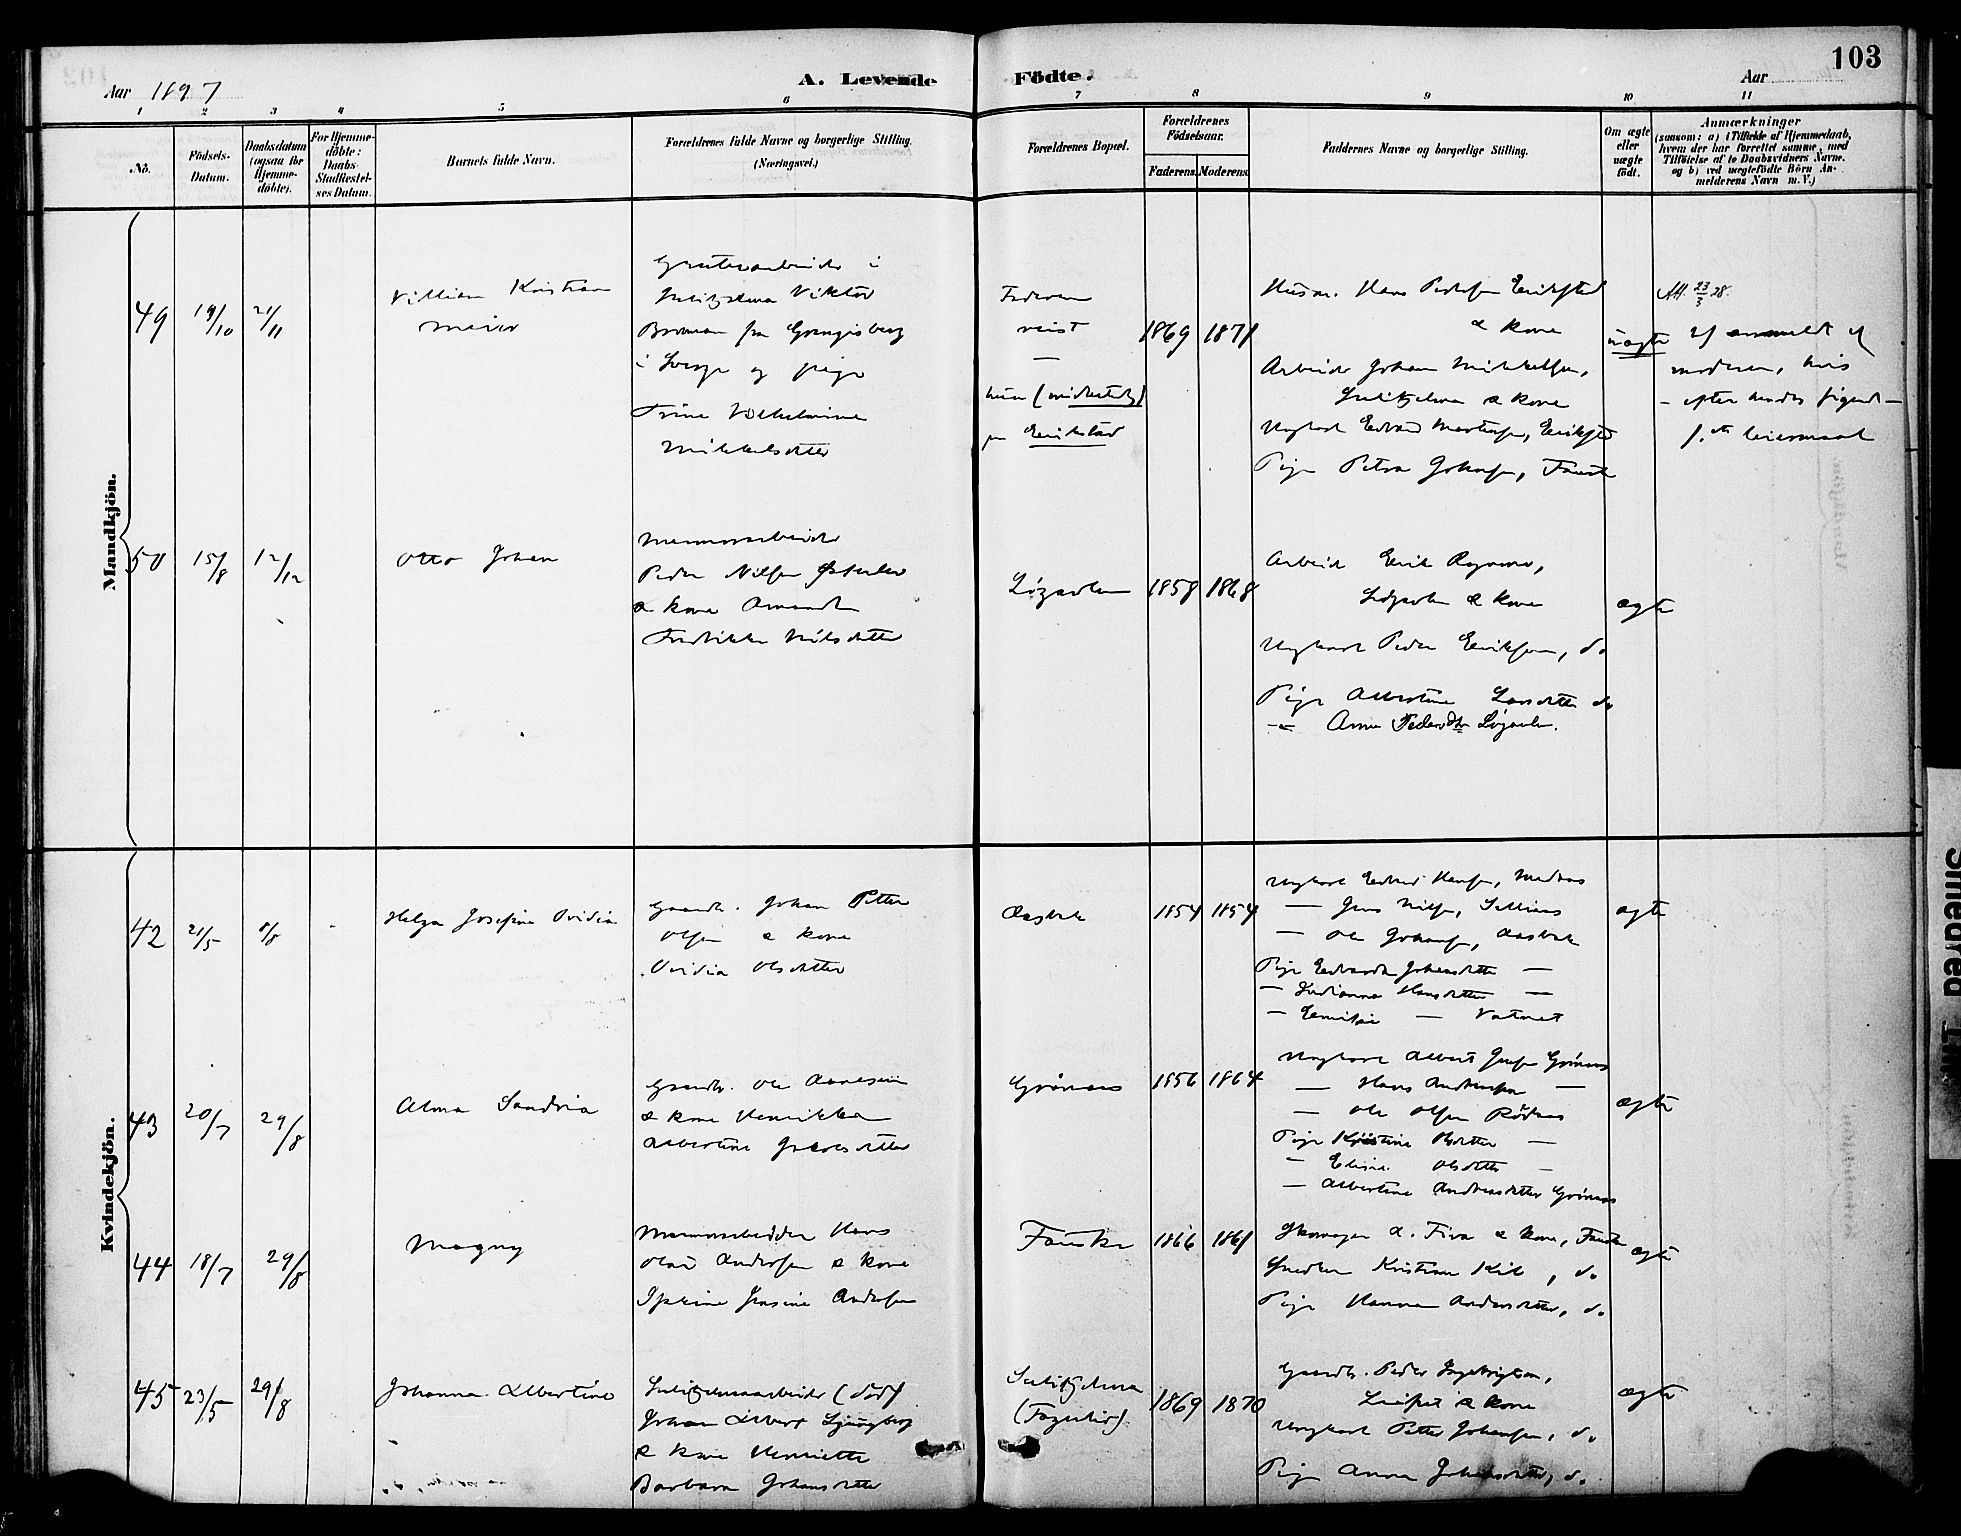 103
Aar 1897
A. Levende
Födte.
Aar
1
2
3
4
5
6
7
8
9
10
11
No.
Födsels-
Datum.
Daabsdatum
(ogsaa for
Hjemme-
döbte).
For Hjemme-
döbte:
Daabs-
Stadfæstel-
ses Datum.
Barnets fulde Navn.
Forældrenes fulde Navne og borgerlige Stilling.
(Næringsvei.)
Forældrenes Bopæl.
Forældrenes
Födselsaar.
Faderens.
Moderens.
Faddernes Navne og borgerlige Stilling.
Om ægte
eller
uægte
födt.
Anmærkninger
(saasom: a) i Tilfælde af Hjemmedaab,
hvem der har forrettet samme, med
Tilföielse af to Daabsvidners Navne.
og b) ved uægtefödte Börn An-
melderens Navn m. V.)
Mandkjön.
49
19/10
21/11
Villiam Kristian
Meier
i
Sulitjelma Viktor
Broman fra Grengisberg
i Sverge og pige
Trine Vilhelmine
Mikkelsdatter
Faderen
reist
—
hun (midlertidig)
paa Erikstad
1869
1871
Husm. Hans Erikstad
& kone
Arbeider Johan Mikkelsen,
Sulitjelma & kone
Ungkarl Edvard Martinsen, Erikstad
Pige Petra Johansen, Fauske
uægte
Att. 23/3 28.
anmeldt af
moderen, hvis
– efter hendes sigende –
1. ste leiermaal
50
15/8
12/12
Otto Johan
Marmorarbeider
Peder Nilsen
& kone Amanda
Fredrikke Nilsdatter
Løgavlen
1858
1868
Arbeid Erik
Løgavlen & kone
Ungkarl Peder Eriksen, do
Pige Albertine Larsdatter do
— Anna Pedersdtr Løgavlen.
ægte
Kvindekjön.
42
21/5
8/8
Helga Josefine Ovidia
Gaardb. Johan Petter
Olsen & kone
Ovidia Olsdatter
Aasbak
1854
1854
Ungkarl Edvard Hansen,
— Jens Nilsen,
— Ole Johansen, Aasbak
Pige Edvarda Johansdatter —
— Hansdatter —
— Emilie — Vatnet
ægte
43
20/7
29/8
Alma Sandria
Gaardb. Ole
& kone Henrikka
Albertine Jakobsdatter
Grønaas
1856
1864
Ungkarl Albert Jensen Grønaas
— Hans Andreasen —
— Ole Olsen Rödaas
Pige Kristine Olsdatter —
— Elise Olsdatter —
— Albertine Andreasdatter Grønaas
ægte
44
18/7
29/8
Magny
Marmorarbeider Hans
Olai Andersen & kone
Jensine Andersen
Fauske
1866
1861
Skomager A. Fiva & kone, Fauske
Snedker Kristian , do
Pige Hanna Andersdatter, do
ægte
45
23/5
29/8
Johanna Albertine
Sulitjelmaarbeider (död)
Johan Albert Ljungberg
& kone Henriette
Barbara Johansdatter
Sulitjelma
(Fagerlid).
1869
1870
Gaardb. Peder Ingebrigtsen,
& kone
Ungkarl Petter Johansen, do
Pige Anna Johansdatter, do
ægte